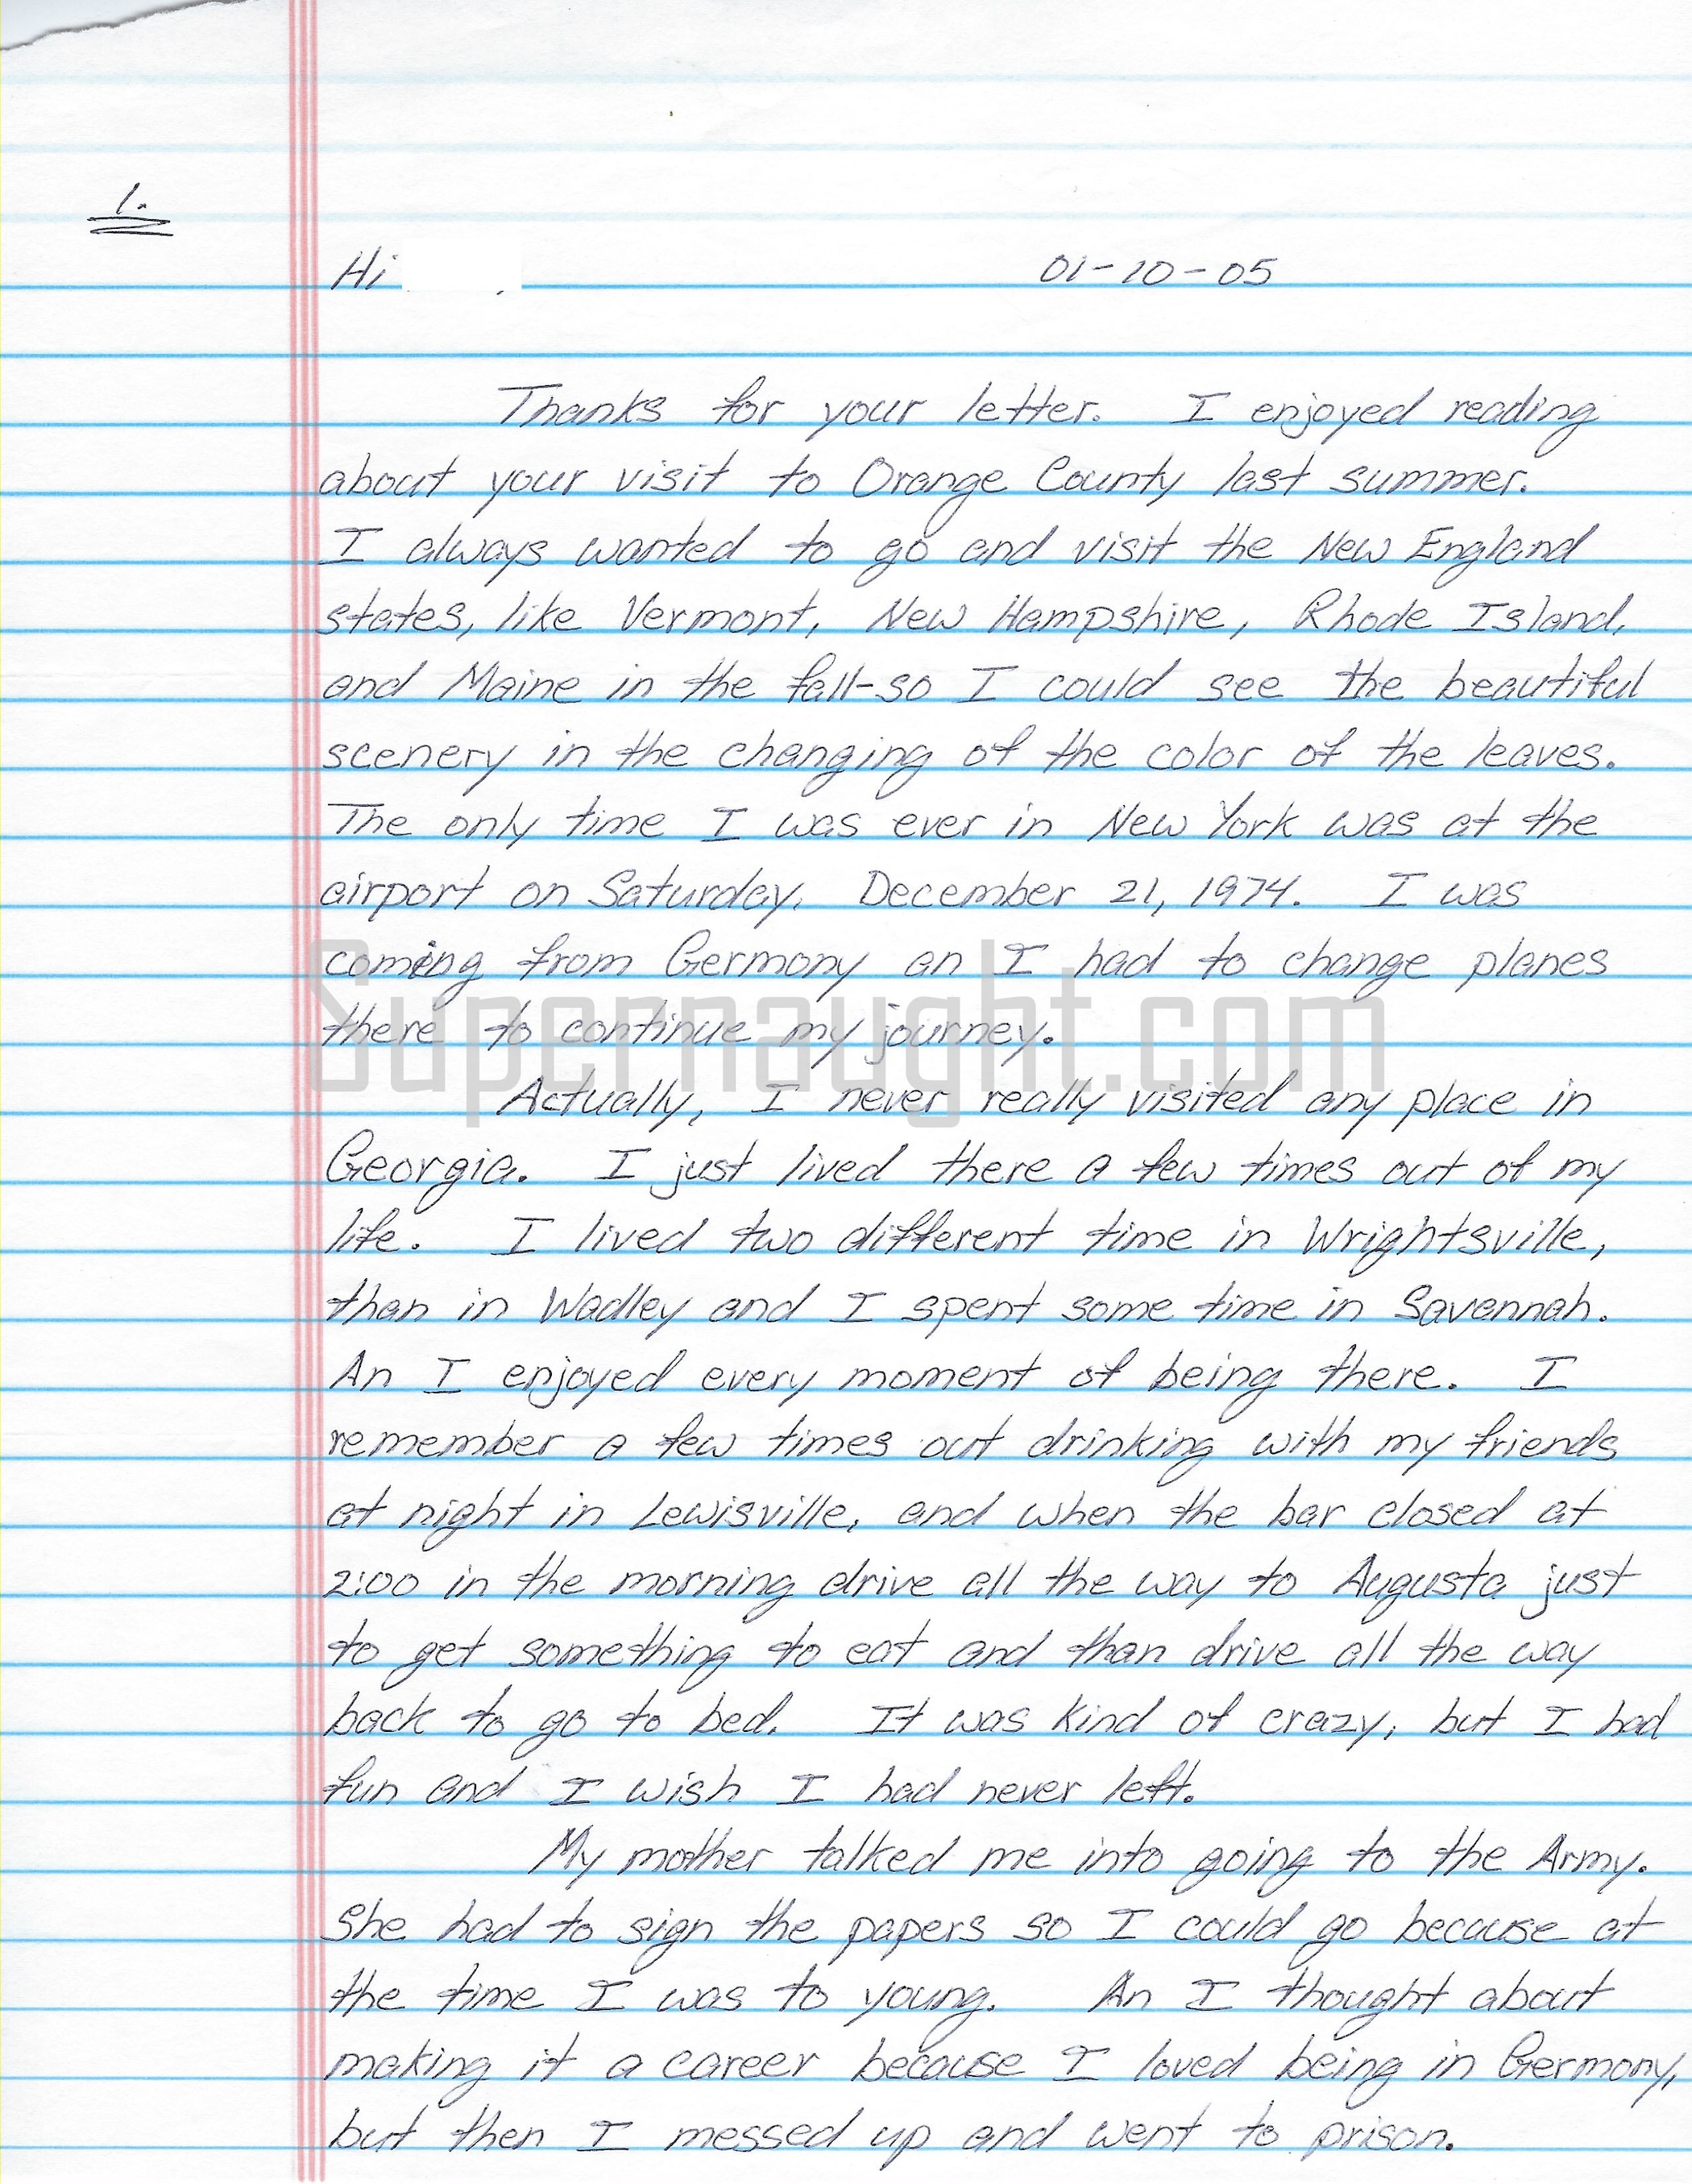 1.
Hi , 01-10-05
Thanks for your letter. I enjoyed reading
about your visit to Orange County last summer.
I always wanted to go and visit the New England
states, like Vermont, New Hampshire, Rhode Island,
and Maine in the fall-so I could see the beautiful
scenery in the changing of the color of the leaves.
The only time I was ever in New York was at the
airport on Saturday, December 21, 1974. I was
coming from Germony an I had to change planes
there to continue my journey.
Supernaught.com
Actually, I never really visited any place in
Georgia. I just lived there a few times out of my
life. I lived two different time in Wrightsville,
than in Wadley and I spent some time in Savannah.
An I enjoyed every moment of being there. I
remember a few times out drinking with my friends
at night in Lewisville, and when the bar closed at
2:00 in the morning drive all the way to Augusta just
to get something to eat and than drive all the way
back to go to bed. It was kind of crazy, but I had
fun and I wish I had never left.
My mother talked me into going to the Army.
She had to sign the papers so I could go because at
the time I was to young. An I thought about
making it a career because I loved being in Germony,
but then I messed up and went to prison.